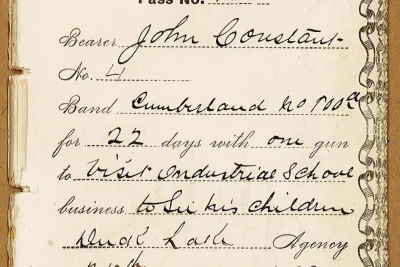 Pass No.
Bearer John Constant
No. 4
Band Cumberland No 100a
for 22 days with one gun
to Visit Industrial School
business to See his children
Duck Lake Agency